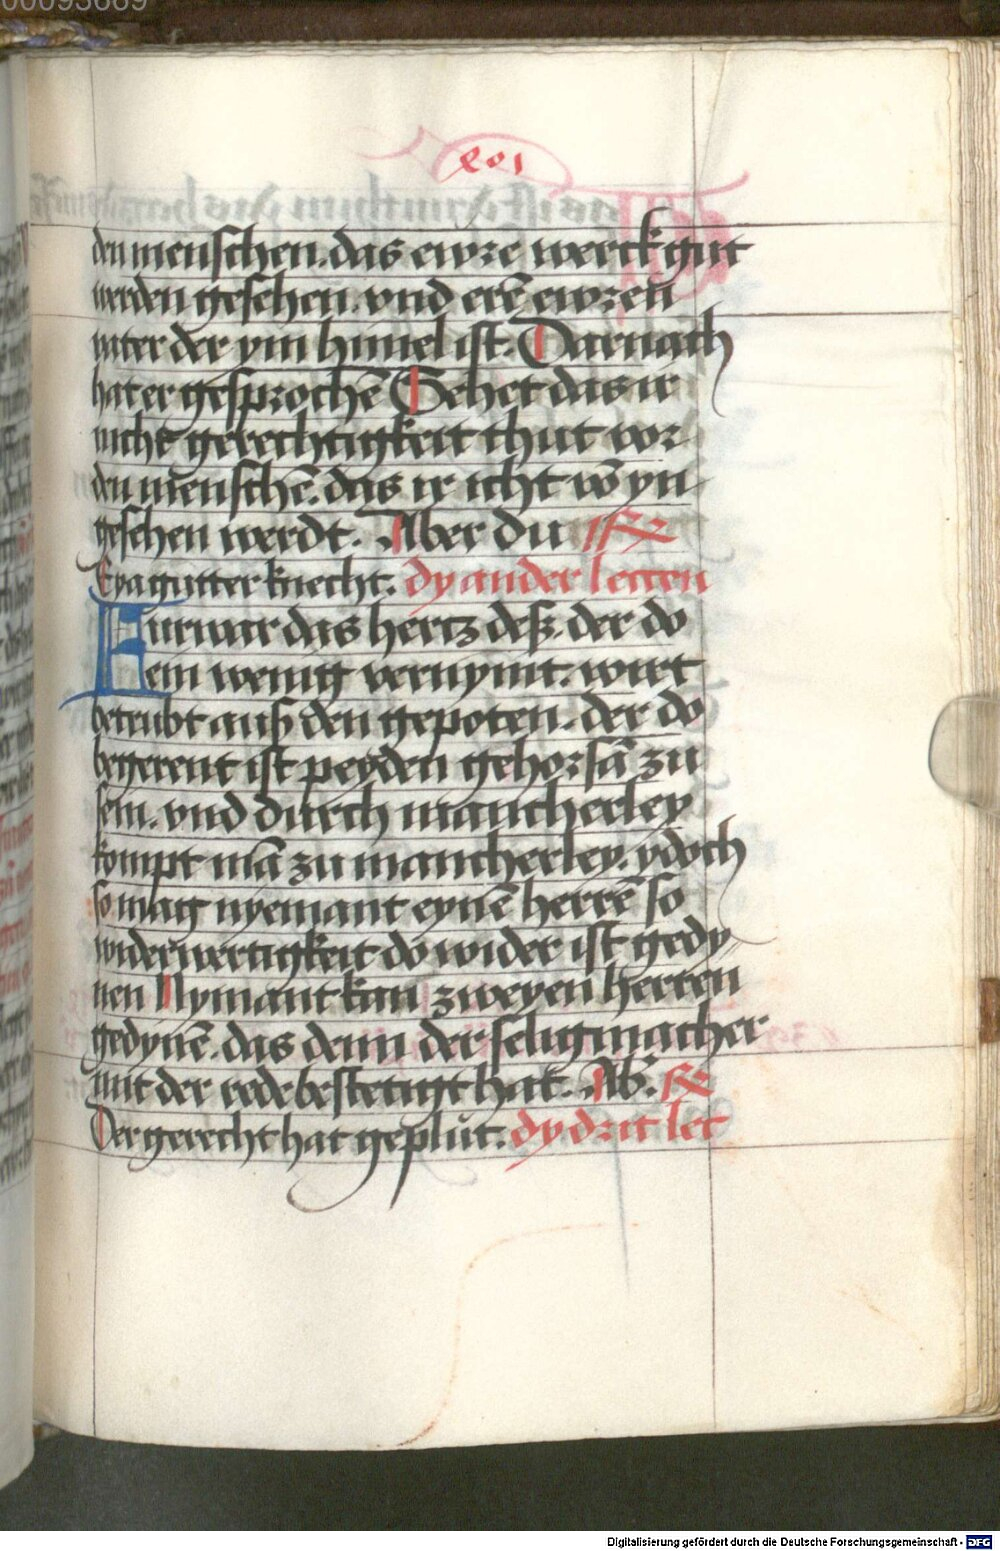 den menschen. das ewre werck gut
werden gesehen. vnd erē ewren
vater der ym himel ist. Darnach
hat er gesprochē Sehet das ir
nicht gerechtigkeit thut vor
den menschē. das ir icht vō yn
gesehen werdt. Aber du
Eya gutter knecht. dy ander leccen
Furwar das hertz deß. der do
ein wenig vernymt. wirt
betrubt auß den gepoten. der do
begerent ist peyden gehorsā zu
sein. vnd durch mancherley
kompt mā zu mancherley. ydoch
so mag nyemant eynē herrē so
widerwertigkeit do wider ist gedy
nen Nymant kan zweyen herren
gedynē. das denn der seligmacher
mit der rede bestetigt hat. Ab.
Der gerecht hat geplut. dy drit lec
Digitalisierung gefördert durch die Deutsche Forschungsgemeinschaft - DFG